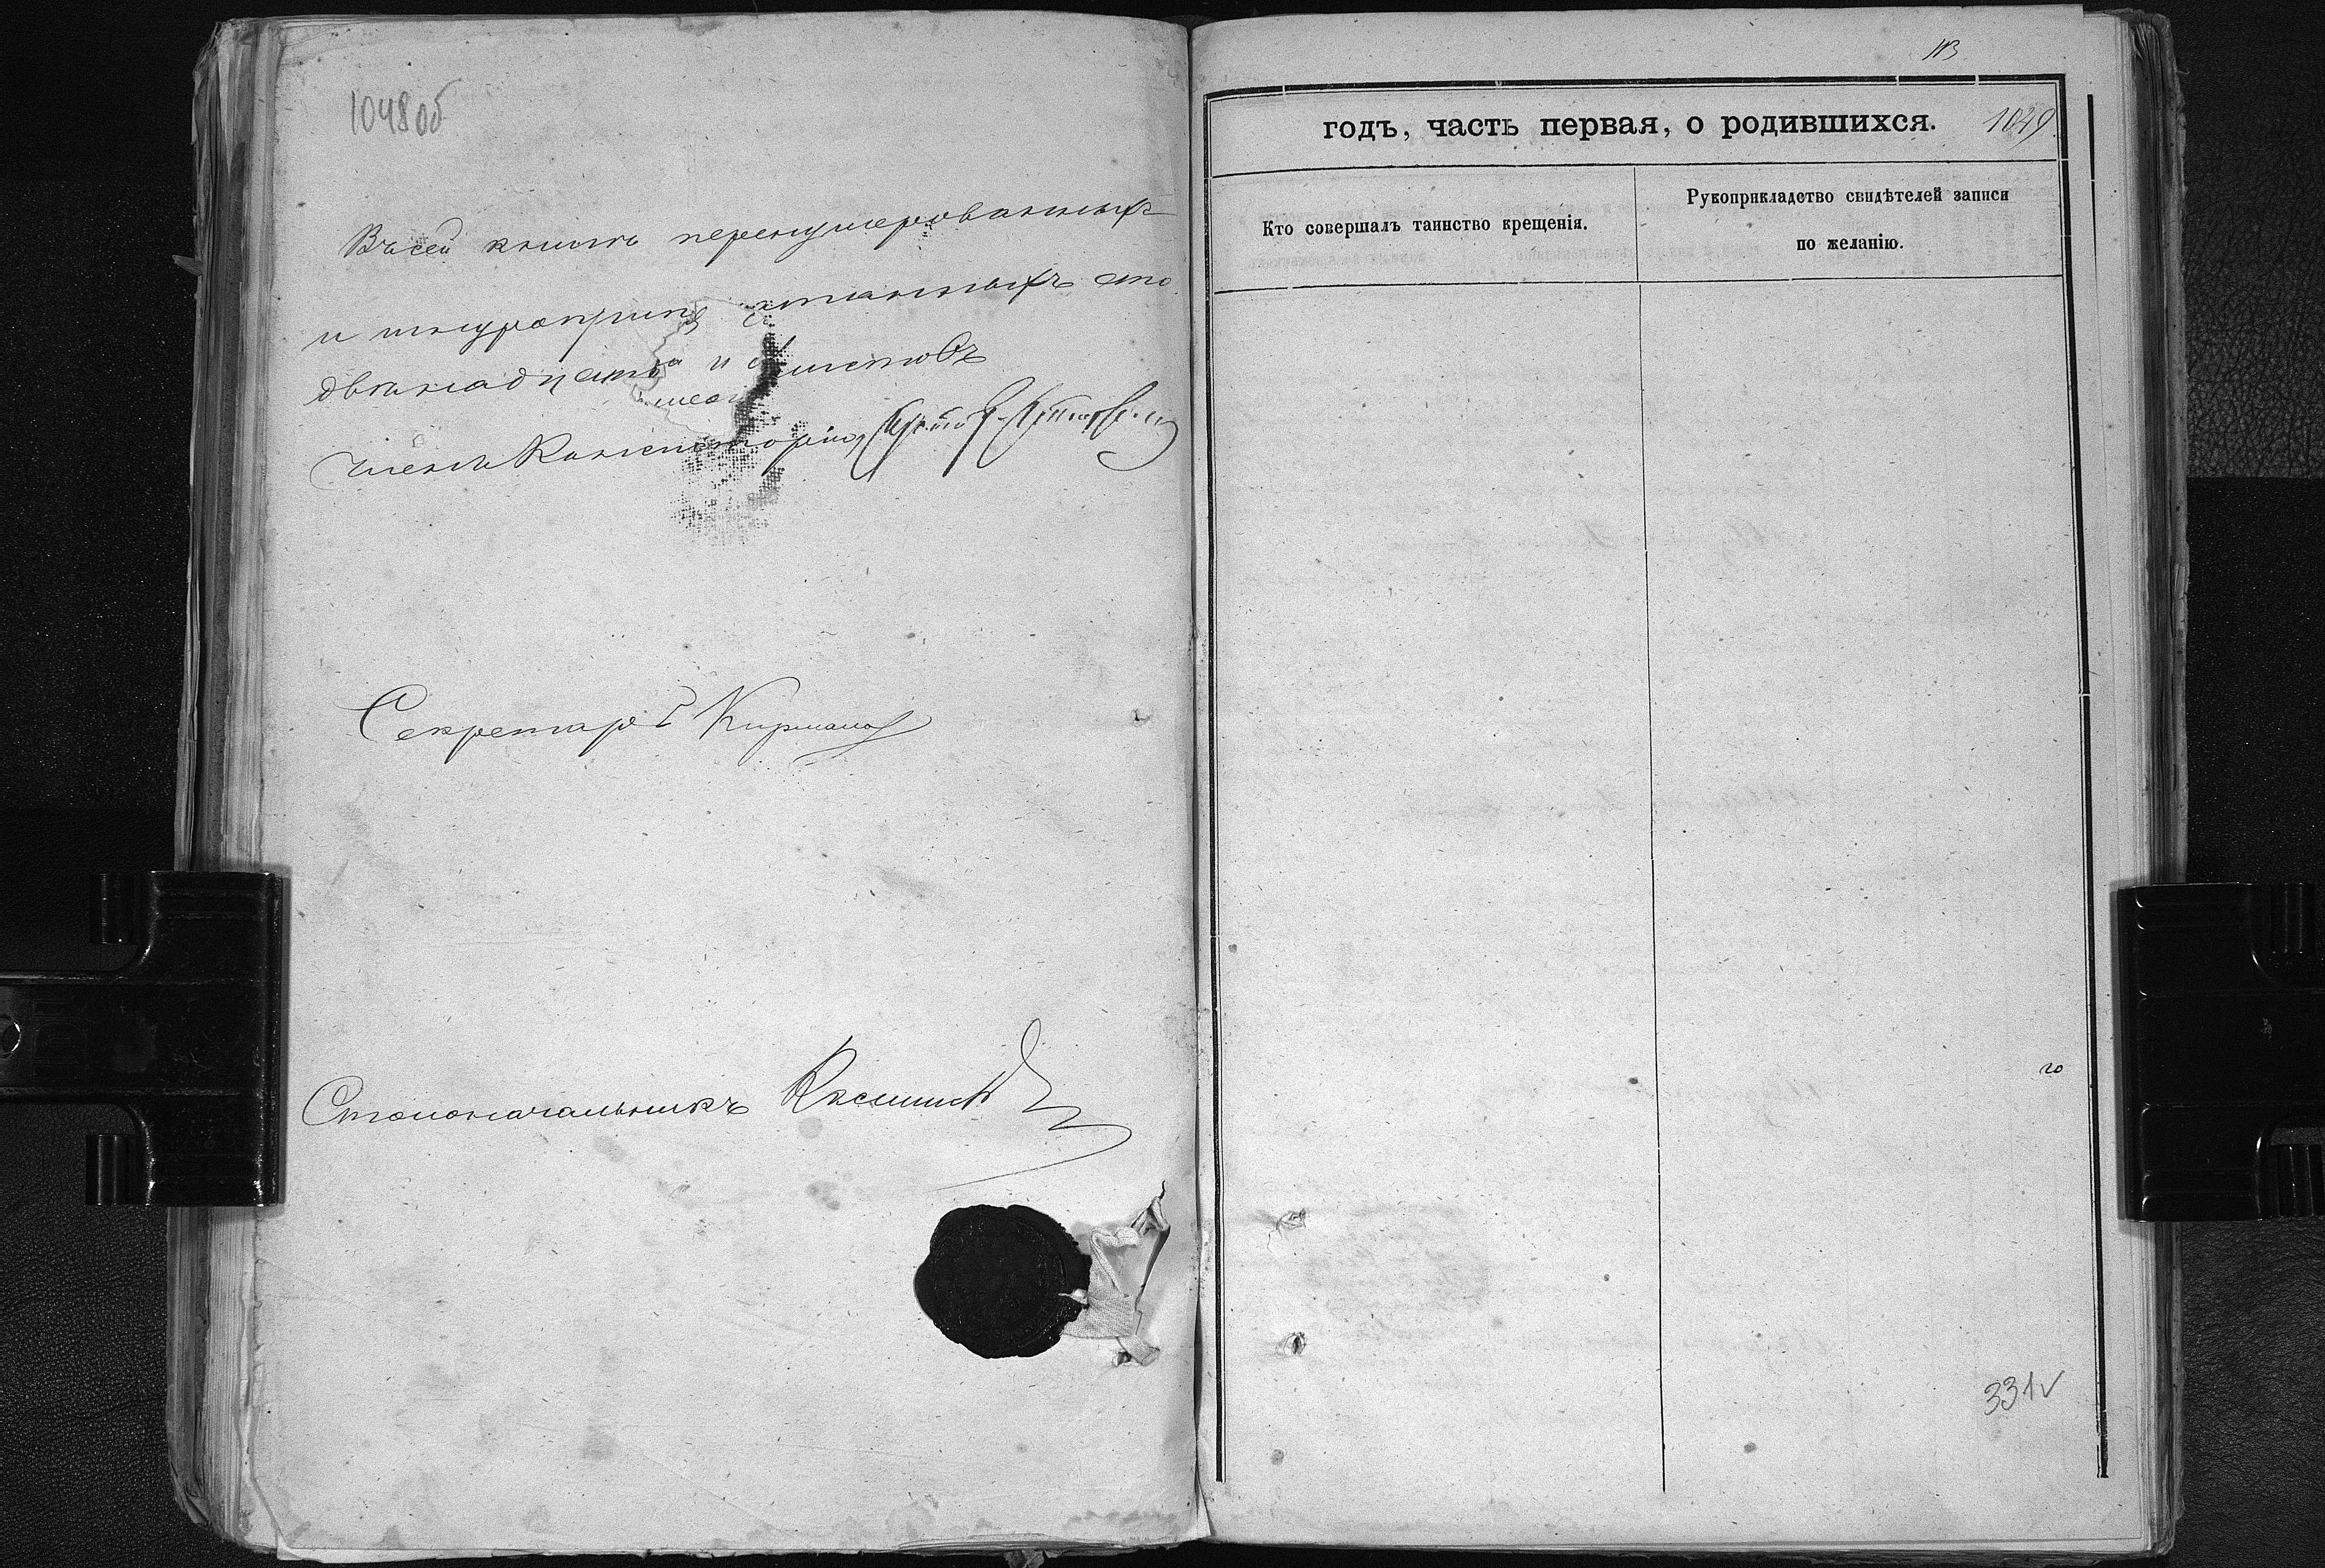 1048об
Въ сей книгѣ перенумерованныхъ
и шнуроприп танныхъ сто
двѣнадцать и листовъ
Членъ Консисторіи,
Секретарь Кирманов
Столоначальникъ
113
годъ, часть первая, о родившихся. 1049
Кто совершалъ таинство крещенія.
Рукоприкладство свидѣтелей записи
по желанію.
331